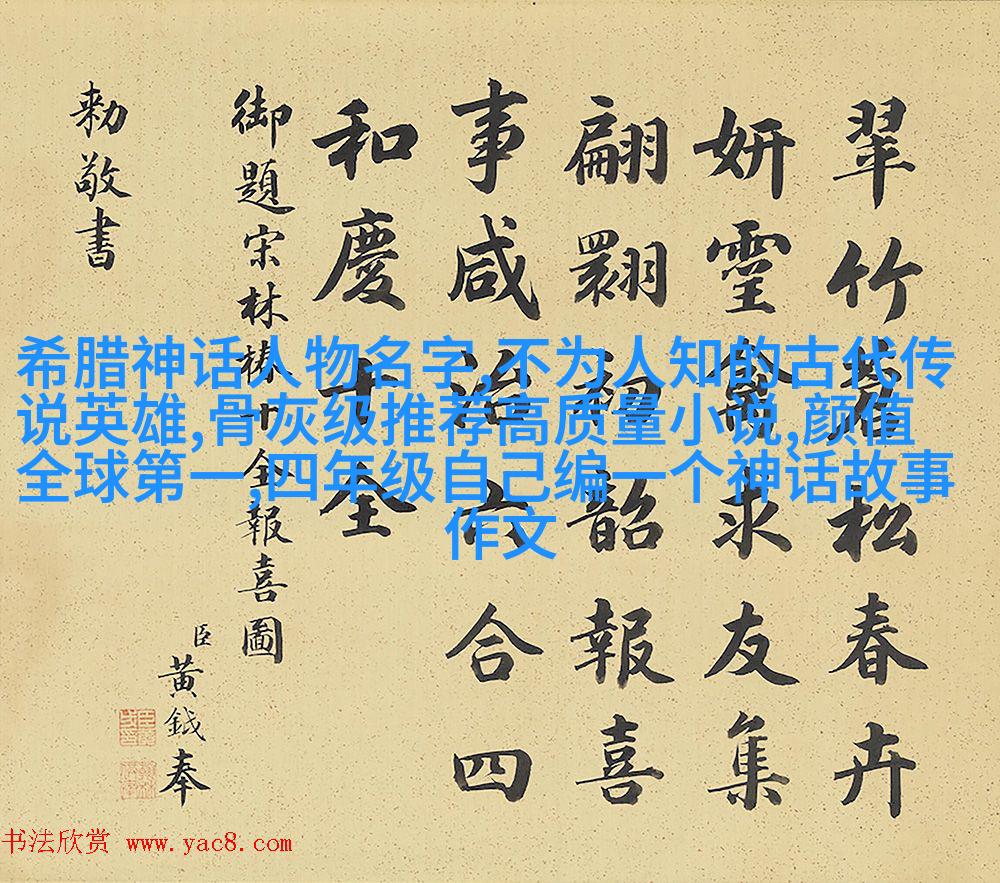 翠竹松春卉
妍靈禽求友集
翩翾初韶報喜
事咸治六合四
和慶十全
御題宋林椿十全報喜圖
臣黄鉞奉
勅敬書
希腊神话人物名字,不为人知的古代传
说英雄,骨灰级推荐高质量小说,颜值
全球第一,四年级自己编一个神话故事
作文
书法欣赏 www.yac8.com